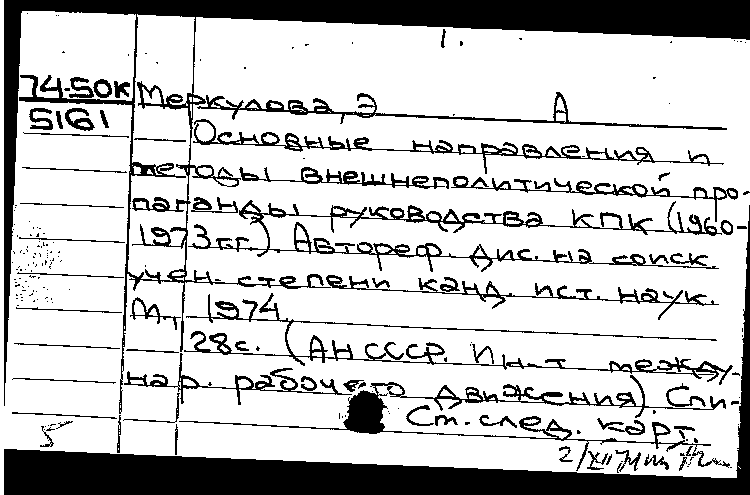 1.
74-50К Меркулова, Э А
5161
Основные направления и
методы внешнеполитической про-
паганды руководства КПК (1960-
1973гг.). Автореф. дис. на соиск.
учен. степени канд. ист. наук.
М., 1974.
28с. (АН СССР. Ин-т между-
нар. рабочего движения). Спи-
Ст. след. карт.
5
2/XII